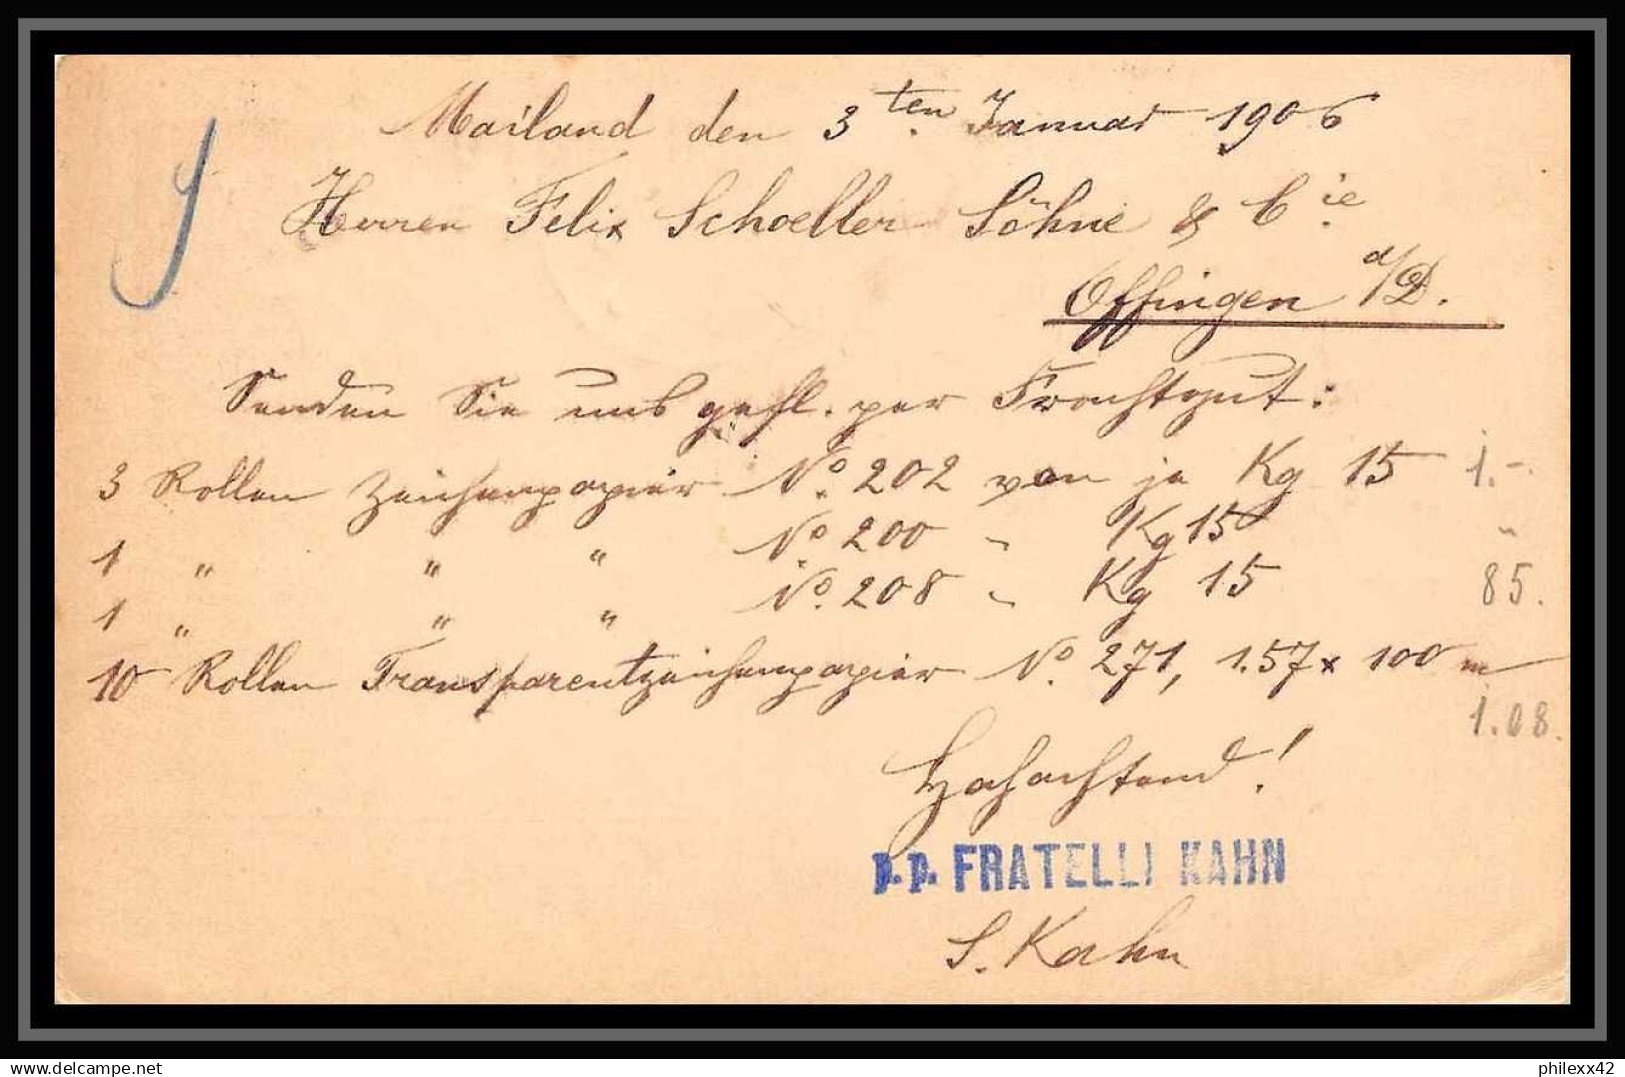 Mailand den 3ten Januar 1906
Herren Felix Schoeller Söhne & Cie
Offingen a/D.
Senden Sie uns gefl. per Frachtgut:
3 Rollen Zeichenpapier No. 202 von je Kg 15 1.-
1 " " " No. 200 " Kg 15 "
1 " " " No. 208 " Kg 15 85.
10 Rollen Transparentzeichenpapier No. 271, 1.57 x 100 m
1.08.
Hochachtend!
p.p. FRATELLI KAHN
S. Kahn
philexx42